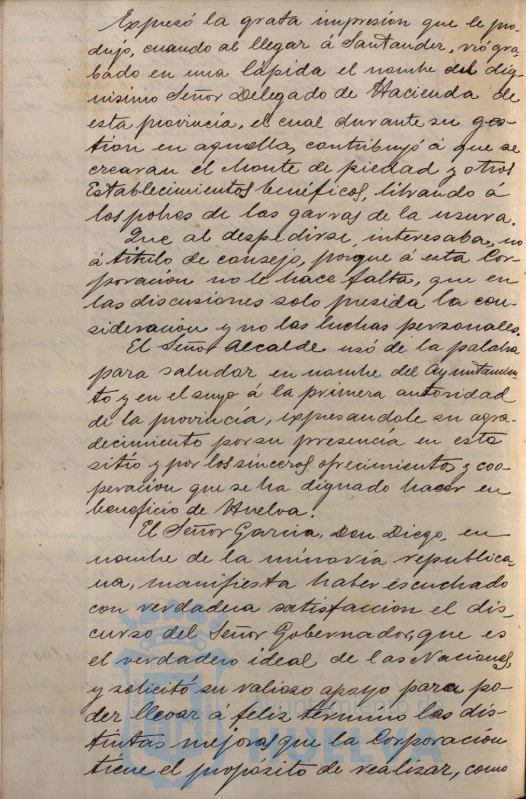 Expresó la grata impresión que le pro-
dujo, cuando al llegar á Santander, vió gra-
bado en una lápida el nombre del dig-
nisimo Señor Delegado de Hacienda de
esta provincia, el cual durante su ges-
tión en aquella, contribuyó á que se
crearan el Monte de piedad y otros
Establecimientos benéficos, librando á
los pobres de las garras de la usura.
Que al despedirse, interesaba, no
á titulo de consejo, porque á esta Cor-
poración no le hace falta, que en
las discusiones solo presida la con-
sideración y no las luchas personales.
El Señor Alcalde usó de la palabra
para saludar en nombre del Ayuntamien-
to y en el suyo á la primera autoridad
de la provincia, expresandole su agra-
decimiento por su presencia en este
sitio y por los sinceros ofrecimientos y coo-
peración que se ha dignado hacer en
beneficio de Huelva.
El Señor Garcia, Don Diego, en
nombre de la minoría republica-
na, manifiesta haber escuchado
con verdadera satisfacción el dis-
curso del Señor Gobernador, que es
el verdadero ideal de las Naciones,
y solicitó su valioso apoyo para po-
der llevar á feliz término las dis-
tintas mejoras que la Corporación
tiene el propósito de realizar, como
Ayuntamiento de
HUELVA